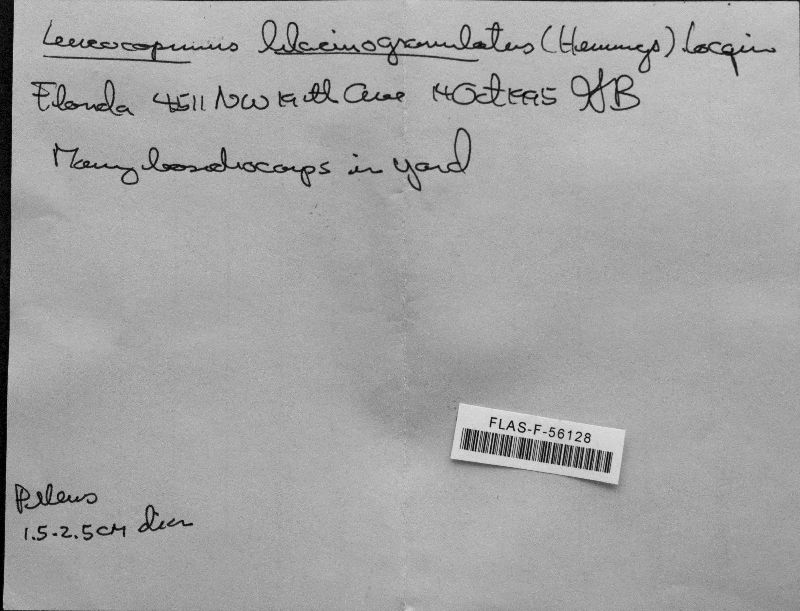 Leucocoprinus lilacinogranulatus (Hennings) Locquin
Florida 4511 NW 19th Ave 14 Oct 1995 GB
Many basidiocarps in yard
FLAS-F-56128
Pileus
1.5-2.5 CM diam